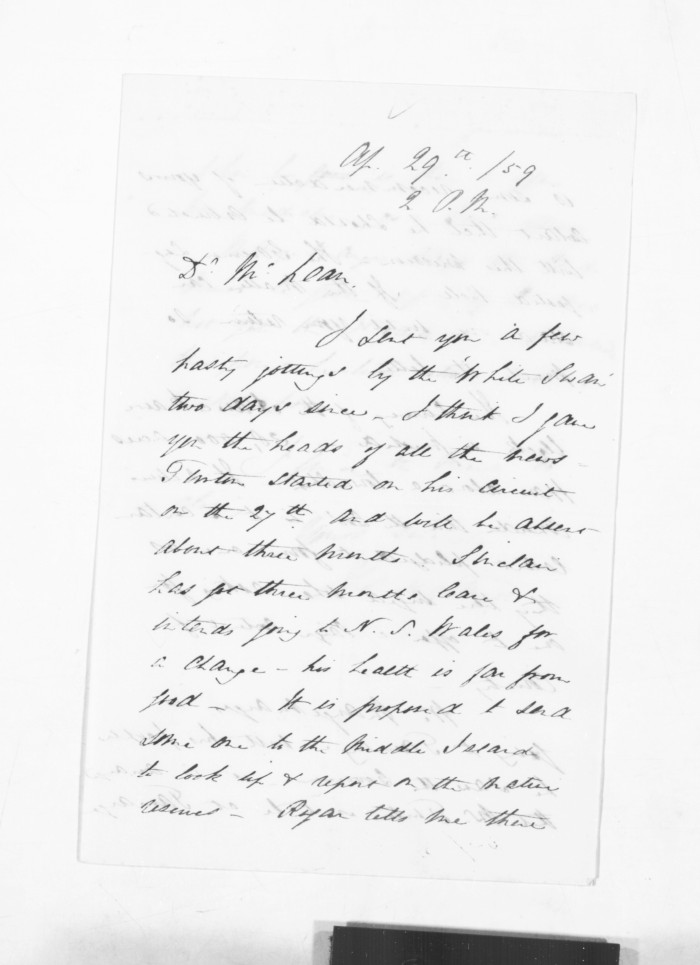 Ap. 29th /59
2 P.M.
Dr McLean.
I sent you a few
hasty jottings by the 'White Swan'
two days since - I think I gave
you the heads of all the news -
Fenton started on his circuit
on the 27th and will be absent
about three months. Sinclair
has got three months leave &
intends going to N. S. Wales for
a change - his health is far from
good - It is proposed to send
some one to the Middle Island
to look up & report on the native
reserves - Rogan tells me there